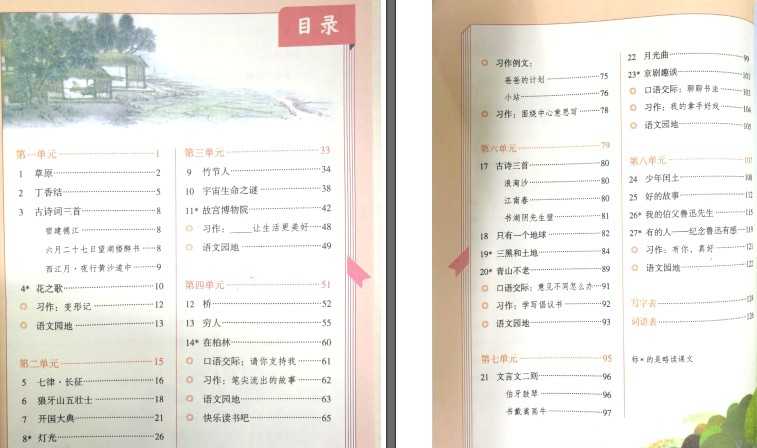 目录
第一单元 1
1 草原 2
2 丁香结 5
3 古诗词三首 8
宿建德江 8
六月二十七日望湖楼醉书 8
西江月·夜行黄沙道中 9
4* 花之歌 10
习作：变形记 12
语文园地 13
第二单元 15
5 七律·长征 16
6 狼牙山五壮士 18
7 开国大典 21
8* 灯光 26
第三单元 33
9 竹节人 34
10 宇宙生命之谜 38
11* 故宫博物院 42
习作：____让生活更美好 48
语文园地 49
第四单元 51
12 桥 52
13 穷人 55
14* 在柏林 60
口语交际：请你支持我 61
习作：笔尖流出的故事 62
语文园地 63
快乐读书吧 65
习作例文：
爸爸的计划 75
小站 76
习作：围绕中心意思写 78
第六单元 79
17 古诗三首 80
浪淘沙 80
江南春 80
书湖阴先生壁 81
18 只有一个地球 82
19* 三黑和土地 84
20* 青山不老 89
口语交际：意见不同怎么办 91
习作：学写倡议书 92
语文园地 93
第七单元 95
21 文言文二则 96
伯牙鼓琴 96
书戴嵩画牛 97
22 月光曲 99
23* 京剧趣谈 101
口语交际：聊聊书法 104
习作：我的拿手好戏 104
语文园地 105
第八单元 107
24 少年闰土 108
25 好的故事 112
26* 我的伯父鲁迅先生 115
27* 有的人——纪念鲁迅有感 119
习作：有你，真好 121
语文园地 122
写字表
词语表
标*的是略读课文